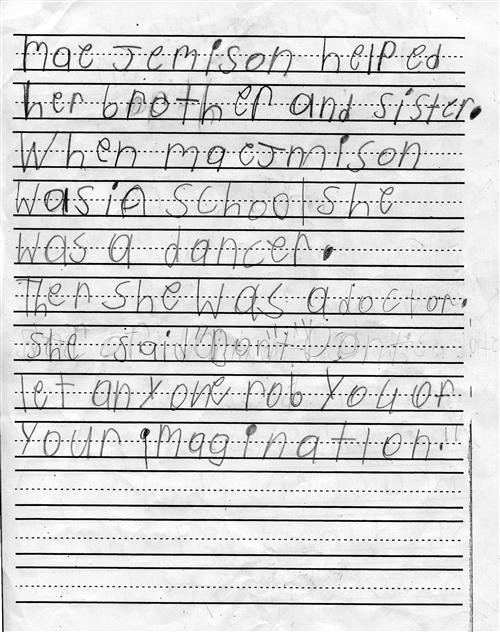 Mae Jemison helped
her brother and sister.
When maeJmison
was in school she
was a dancer.
Then she was a doctor.
she said "Don't
let anyone rob you of
your imagination."